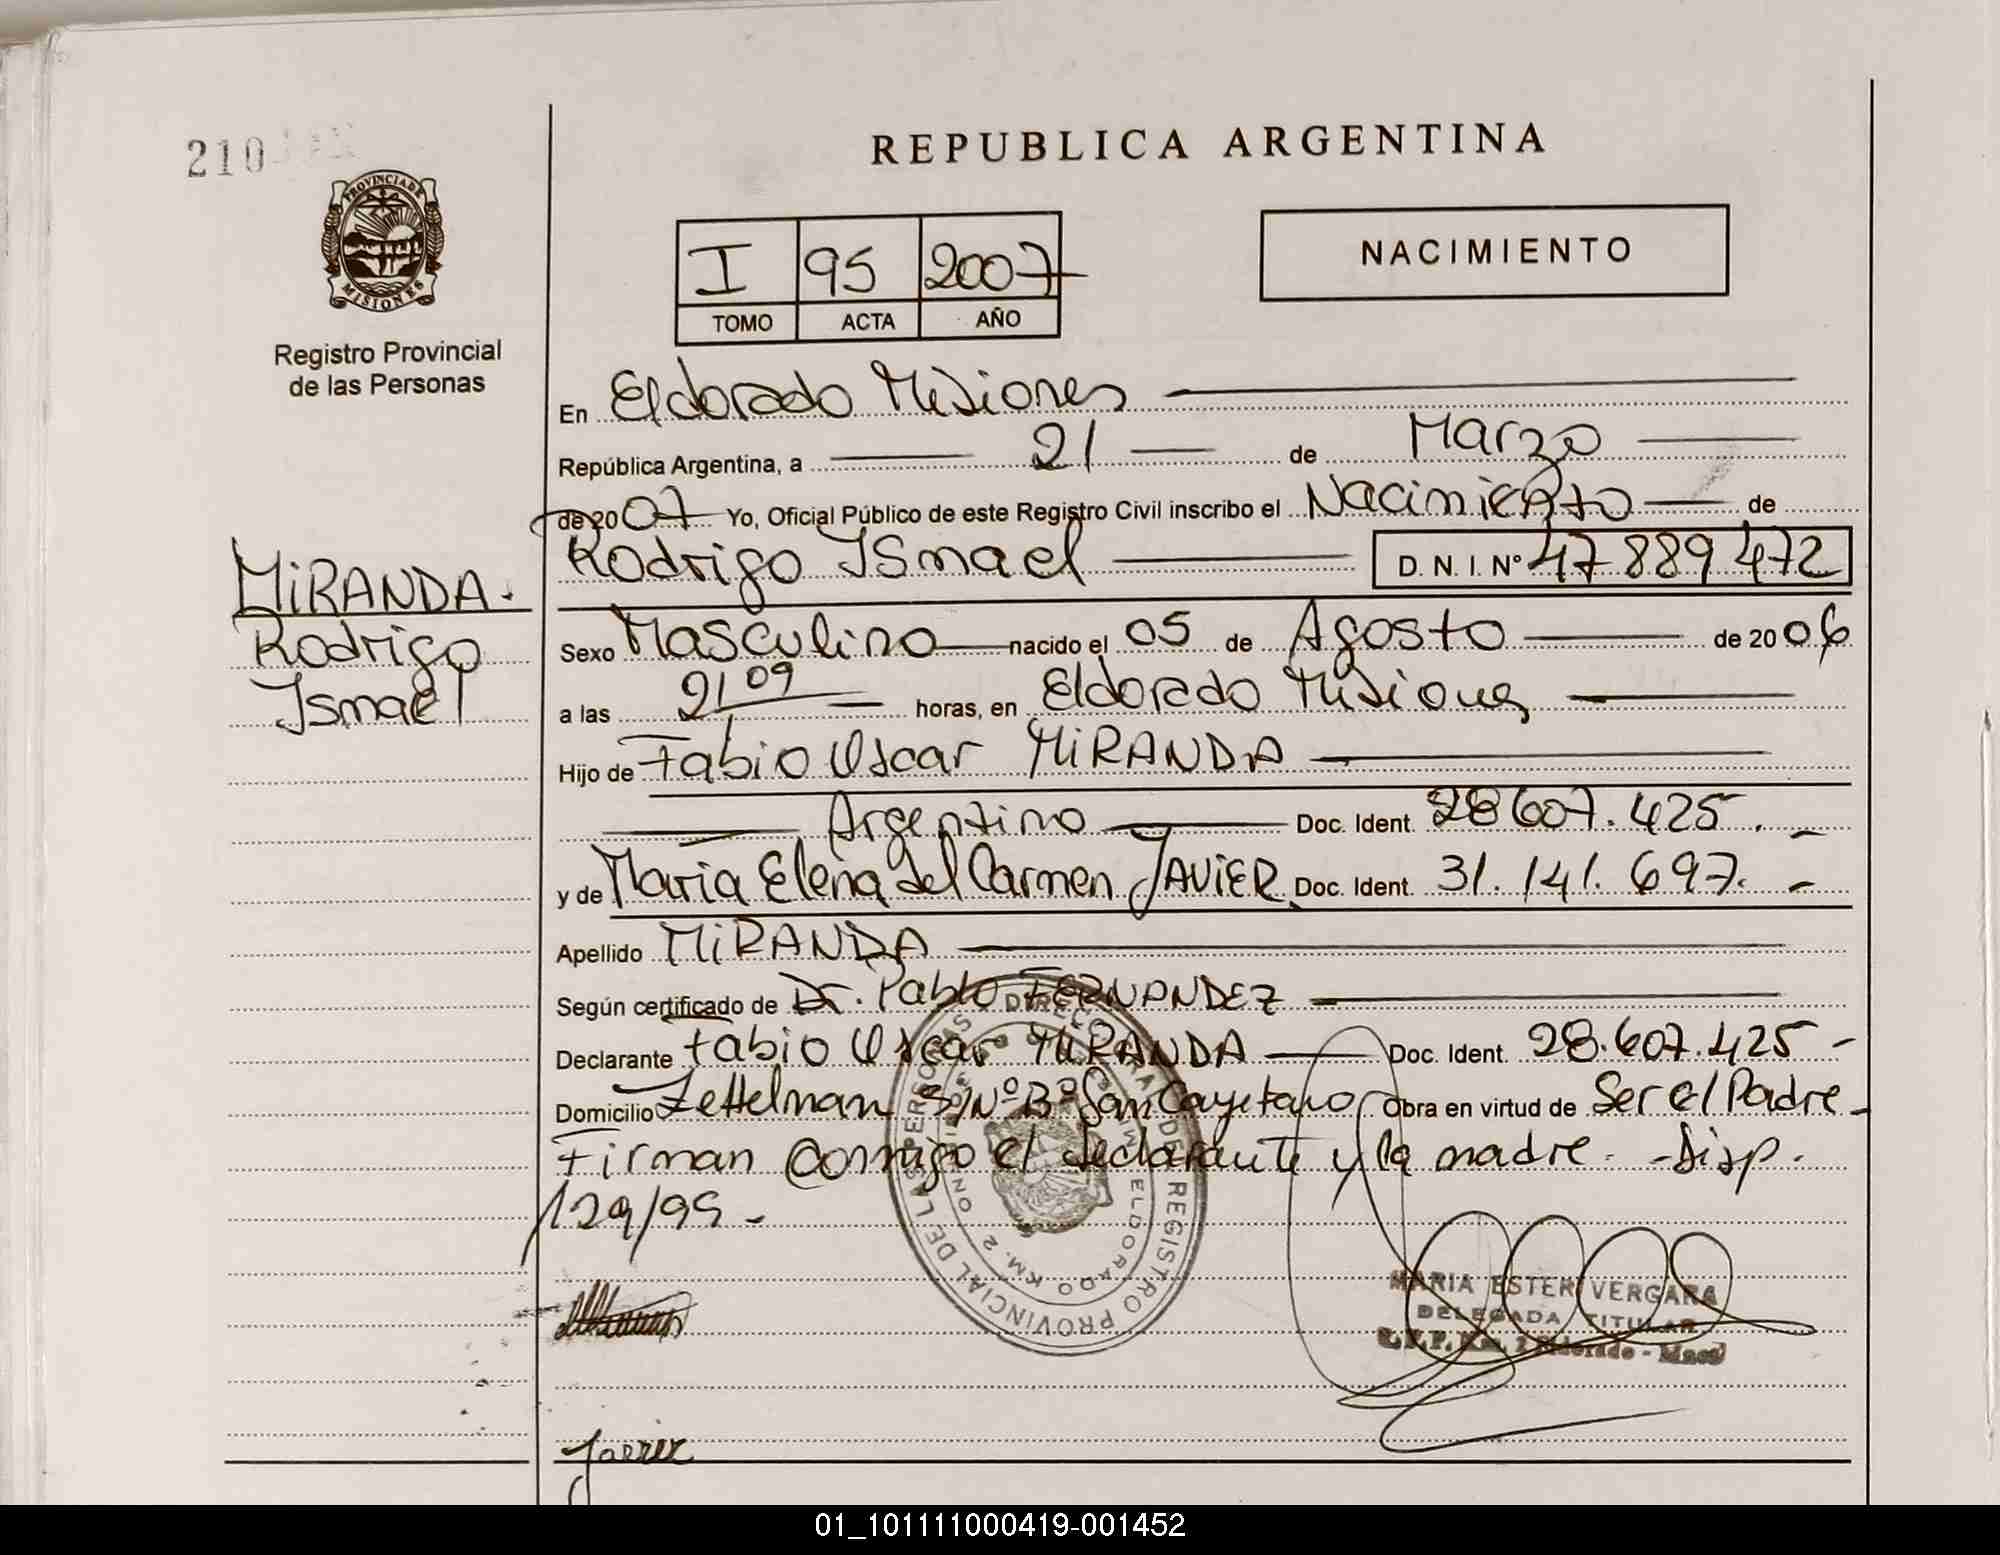 210
PROVINCIA DE
MISIONES
Registro Provincial
de las Personas
MIRANDA.
Rodrigo
Ismael
REPUBLICA ARGENTINA
I 95 2007
TOMO ACTA AÑO
NACIMIENTO
En Eldorado Misiones
República Argentina, a 21 de Marzo
de 2007 Yo, Oficial Público de este Registro Civil inscribo el Nacimiento de
Rodrigo Ismael D. N. I. Nº 47 889 472
Sexo Masculino nacido el 05 de Agosto de 2006
a las 21 09 horas, en Eldorado Misiones
Hijo de Fabio Oscar MIRANDA
Argentino Doc. Ident. 28 607. 425. -
y de Maria Elena del Carmen JAVIER. Doc. Ident. 31. 141. 697. -
Apellido MIRANDA
Según certificado de Dr. Pablo FERNANDEZ
Declarante Fabio Oscar MIRANDA Doc. Ident. 28.607.425 -
Domicilio Zettelman S/Nº Bº San Cayetano Obra en virtud de Ser el Padre -
Firman Conmigo el declarante y la madre. - Disp.
129/99 -
DIRECCION REGISTRO PROVINCIAL DE LAS PERSONAS
ELDORADO KM. 2
MARIA ESTER VERGARA
DELEGADA TITULAR
R.P.P. Km. 2 Eldorado - Mnes
Javier
01_101111000419-001452